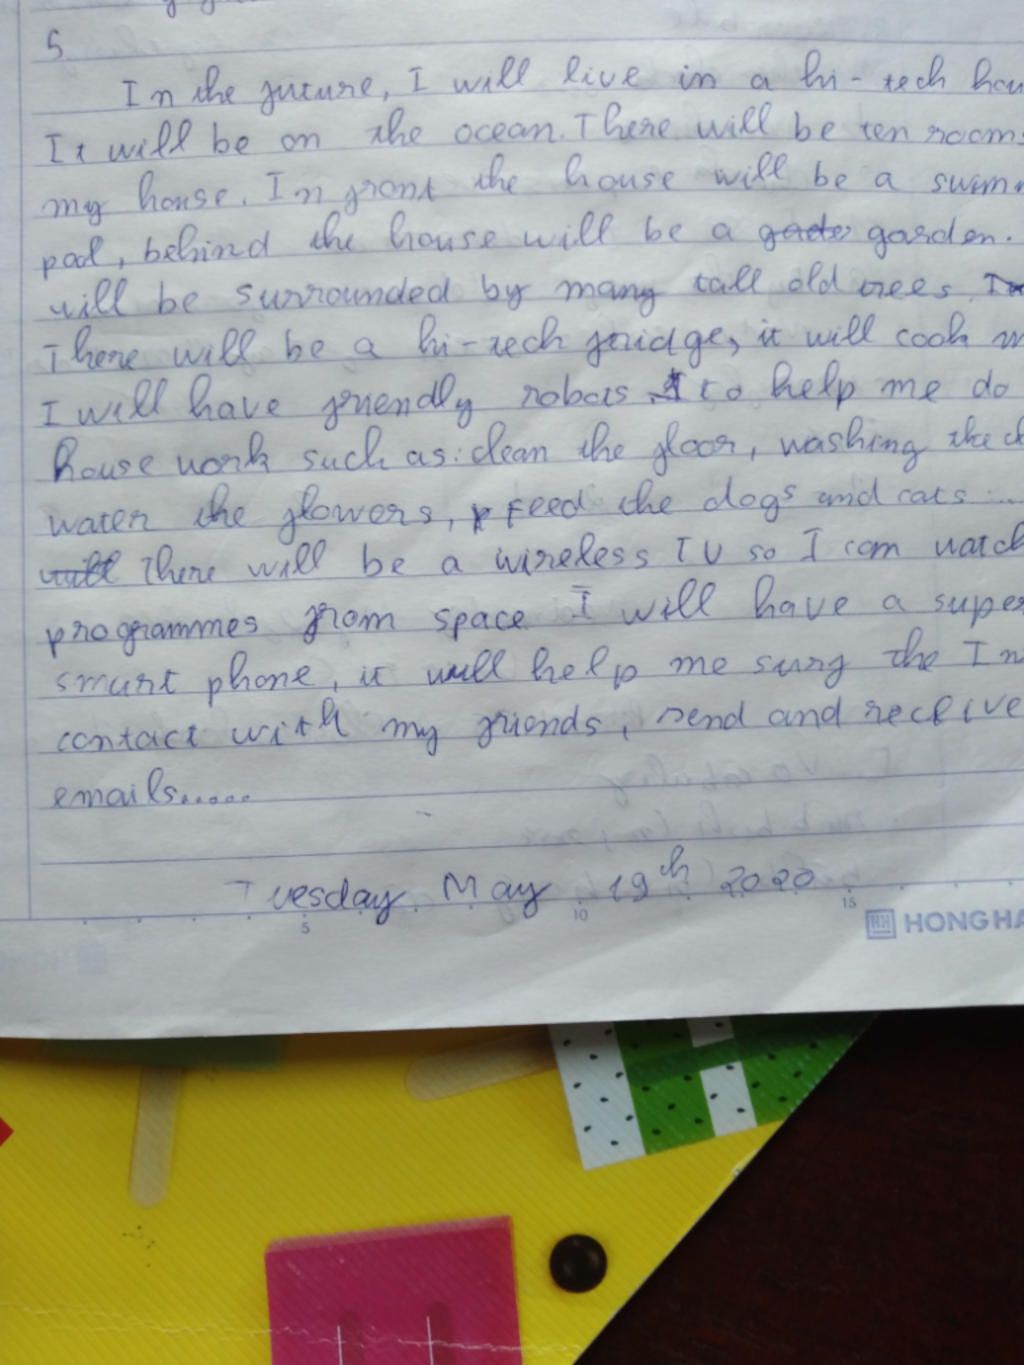 5
In the future, I will live in a hi-tech
It will be on the ocean. There will be ten rooms
my house. In front the house will be a
pool, behind the house will be a garden.
will be surrounded by many tall old trees.
There will be a hi-tech fridge, it will cook
I will have friendly robots to help me do
house work such as: clean the floor, washing the
water the flowers, feed the dogs and cats ...
There will be a wireless TV so I can watch
programmes from space I will have a super
smart phone, it will help me surg the
contact with my friends, send and receive
emails.....
Tuesday May 19th 2020
5 10 15
HONG HA